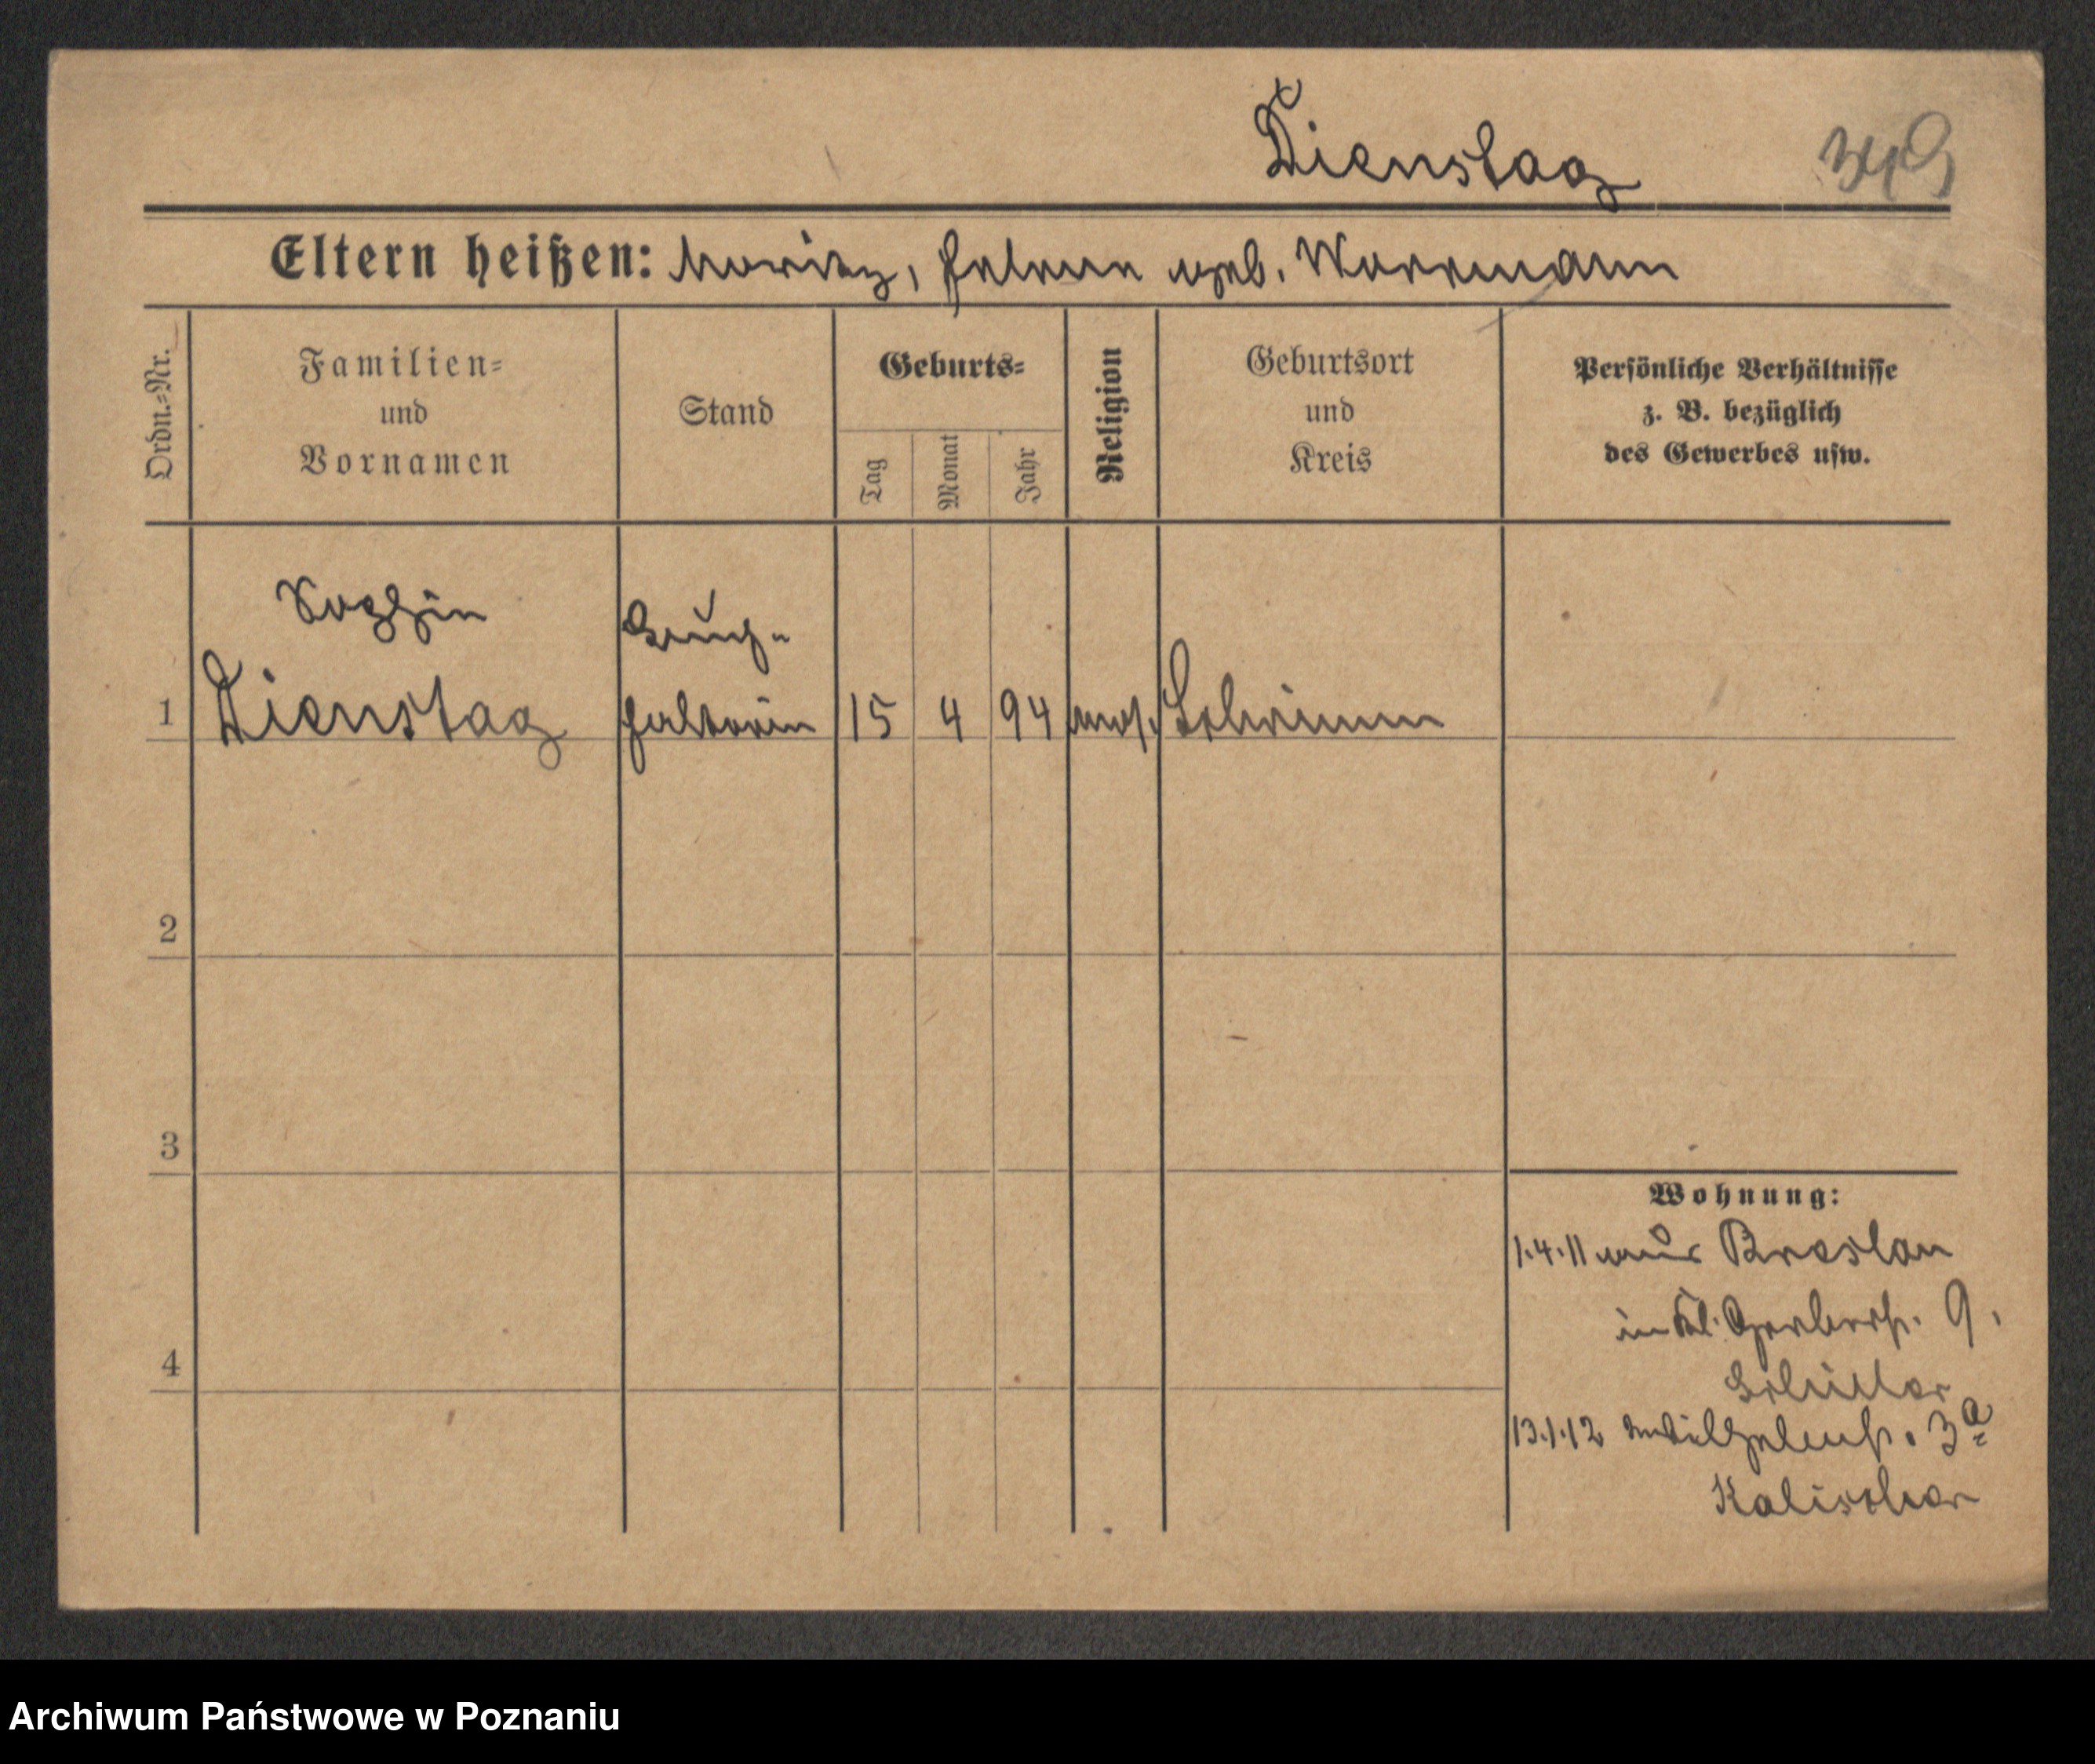 Dienstag 349
Eltern heißen: Moritz, Helene geb. Warrmann
Ordn.=Nr.
Familien=
und
Vornamen
Stand
Geburts=
Tag
Monat
Jahr
Religion
Geburtsort
und
Kreis
Persönliche Verhältnisse
z. B. bezüglich
des Gewerbes usw.
Sophie
Buch-
1 Dienstag halterin 15 4 94 mos. Schrimm
2
3
4
Wohnung:
1.4.11 aus Breslau
in Kl. Gerberstr. 9.
13.1.12 Wilhelmstr. 3a
Kalischer
Archiwum Państwowe w Poznaniu